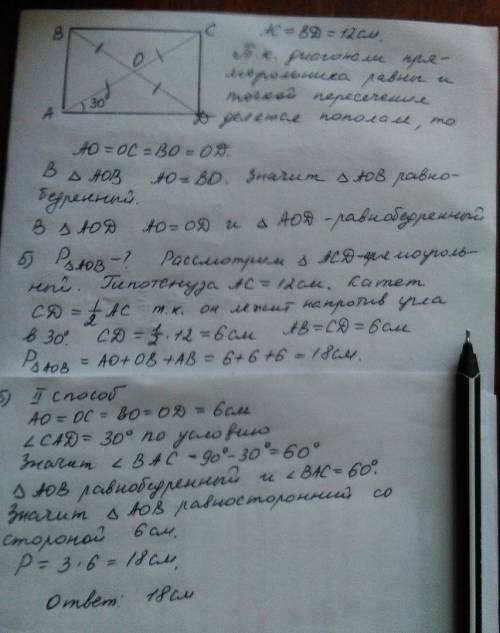 B C
O
A 30° D
AC = BD = 12см.
Т.к. диагонали пря-
моугольника равны и
точкой пересечения
делятся пополам, то
AO = OC = BO = OD.
В △ AOB AO = BO. Значит △ AOB равно-
бедренный.
В △ AOD AO = OD и △ AOD - равнобедренный
б) P△AOB - ? Рассмотрим △ ACD - прямоуголь-
ный. Гипотенуза AC = 12см. Катет
CD = 1/2 AC т.к. он лежит напротив угла
в 30°. CD = 1/2 · 12 = 6см AB = CD = 6см
P△AOB = AO + OB + AB = 6 + 6 + 6 = 18см.
б) II способ
AO = OC = BO = OD = 6см
∠CAD = 30° по условию
Значит ∠BAC = 90° - 30° = 60°
△ AOB равнобедренный и ∠BAC = 60°.
Значит △ AOB равносторонний со
стороной 6см.
P = 3 · 6 = 18см.
Ответ: 18см